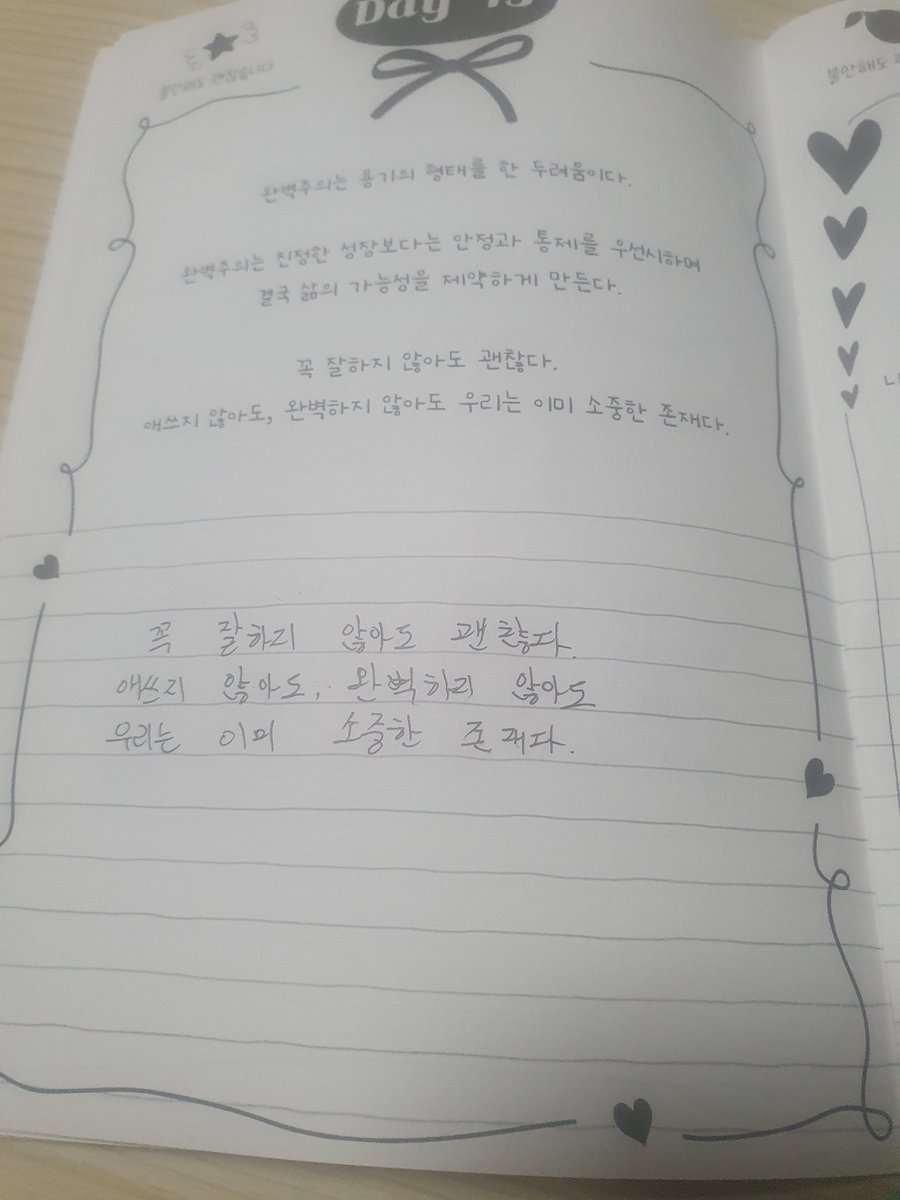 Day
불안해도 괜찮습니다
완벽주의는 용기의 형태를 한 두려움이다.
완벽주의는 진정한 성장보다는 안정과 통제를 우선시하며
결국 삶의 가능성을 제약하게 만든다.
꼭 잘하지 않아도 괜찮다.
애쓰지 않아도, 완벽하지 않아도 우리는 이미 소중한 존재다.
꼭 잘하지 않아도 괜찮다.
애쓰지 않아도, 완벽하지 않아도
우리는 이미 소중한 존재다.
불안해도